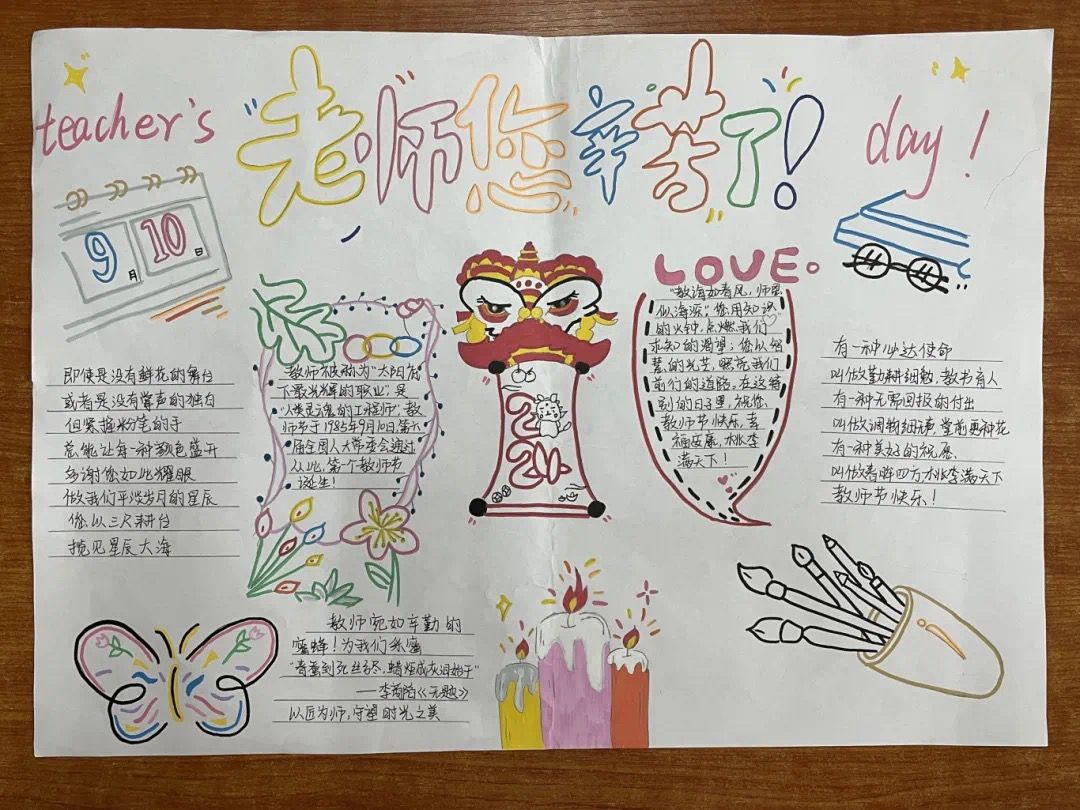 teacher's
"老师您辛苦了!"
day!
9月 10日
LOVE.
即使是没有鲜花的舞台
或者是没有掌声的独白
但紧握粉笔的手
总能让每一种颜色盛开
多谢您如此耀眼
做我们平淡岁月的星辰
您以三尺耕台
揽见星辰大海
教师被称为"太阳底
下最光辉的职业;是
"人类灵魂的工程师",教
师节于1985年9月10日,第六
届全国人大常委会通过
从此,第一个教师节
诞生!
20
20
"教诲如春风,师恩
似海深";您用知识
的火钟,点燃我们
求知的渴望;您以智
慧的光芒,照亮我们
前行的道路。在这特
别的日子里,祝您
教师节快乐,幸
福安康,桃李
满天下!
有一种必达使命
叫做勤耕细勉,教书育人
有一种无需回报的付出
叫做润物细无声,堂前更种花
有一种美好的祝愿
叫做春晖四方桃李满天下
教师节快乐!
教师宛如辛勤的
蜜蜂!为我们采蜜
"春蚕到死丝方尽,蜡炬成灰泪始干"
——李商隐《无题》
以匠为师,守望时光之美